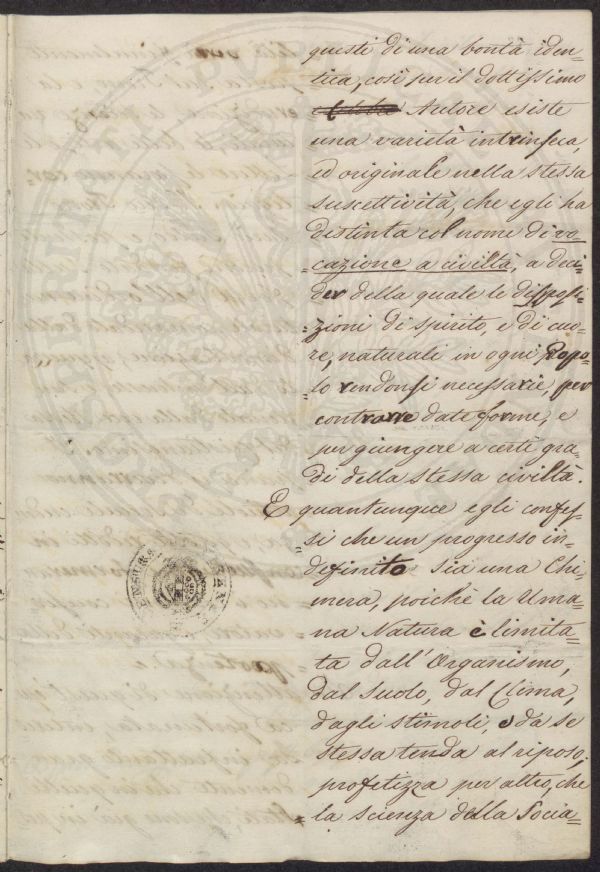 questi di una bontà iden=
tica, così per il dottissimo
Autore esiste
una varietà intrinseca,
ed originale nella stessa
suscettività, che egli ha
distinta col nome di vo
=cazione a civiltà, a deci=
=der della quale le disposi=
=zioni di spirito, e di cuo=
=re, naturali in ogni Popo=
lo rendonsi necessarie, per
contrarre date forme, e
per giungere a certi gra=
di della stessa civiltà.
E quantunque egli confes=
=si che un progresso in=
definito sia una Chi=
mera, poichè la Uma=
na Natura è limita=
ta dall'Organismo,
dal suolo, dal Clima,
dagli stimoli, e da se
stessa tenda al riposo,
profetizza per altro, che
la scienza della Socia=